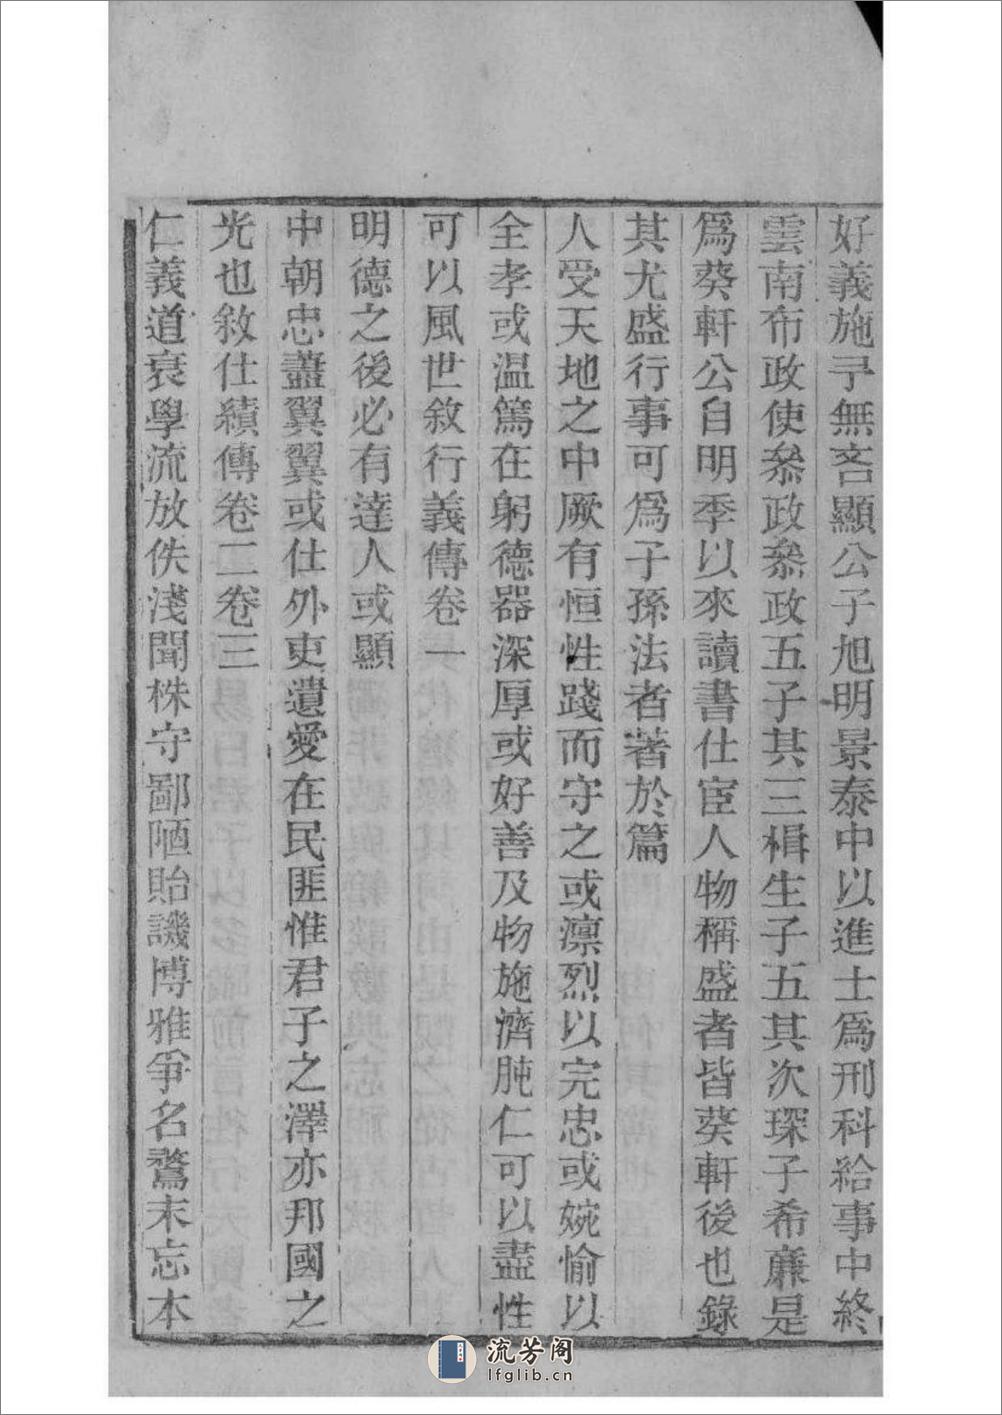 好義施予無吝顯公子旭明景泰中以進士爲刑科給事中終
雲南布政使叅政叅政五子其三楫生子五其次琛子希亷是
爲葵軒公自明季以來讀書仕宦人物稱盛者皆葵軒後也錄
其尤盛行事可爲子孫法者著於篇
人受天地之中厥有恒性踐而守之或凛烈以完忠或婉愉以
全孝或温篤在躬德器深厚或好善及物施濟肫仁可以盡性
可以風世敘行義傳卷一
明德之後必有達人或顯
中朝忠藎翼翼或仕外吏遺愛在民匪惟君子之澤亦邦國之
光也敘仕績傳卷二卷三
仁義道衰學流放佚淺聞株守鄙陋貽譏博雅爭名鶩末忘本
流芳阁
lfglib.cn